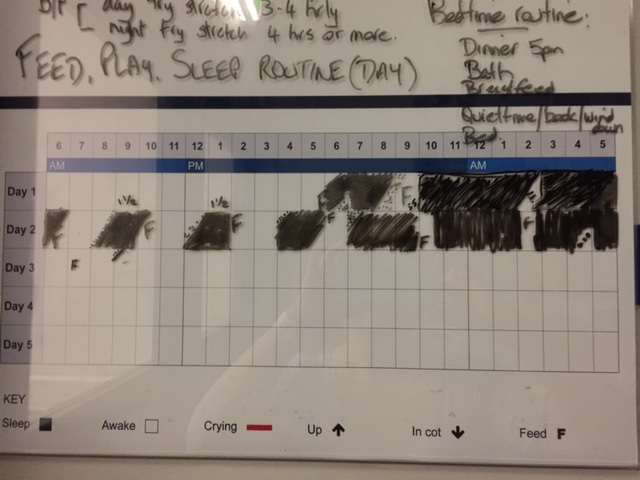 D/F [ day try stretch 3-4 hrly
night try stretch 4 hrs or more.
FEED, PLAY, SLEEP ROUTINE (DAY)
Bedtime routine:
Dinner 5pm
Bath
Breastfeed
Quiettime/book/wind down
Bed.
6 7 8 9 10 11 12 1 2 3 4 5 6 7 8 9 10 11 12 1 2 3 4 5
AM PM AM
Day 1 F F
1½ 1½
Day 2 F F F F F F
Day 3 F
Day 4
Day 5
KEY
Sleep Awake Crying Up In cot Feed F